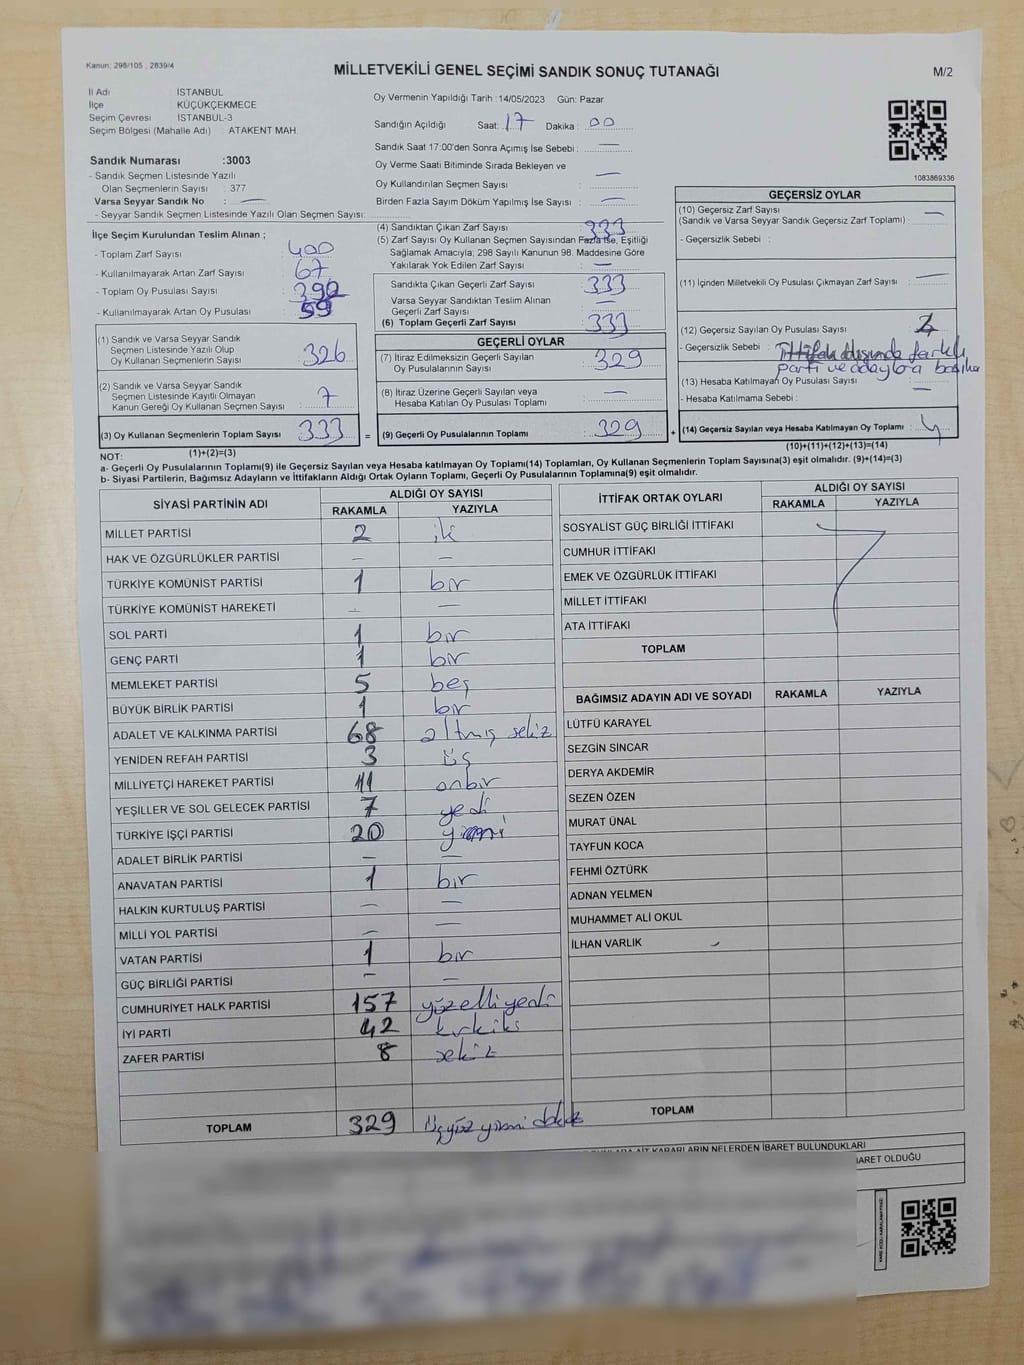 Kanun: 298/105 , 2839/4
MİLLETVEKİLİ GENEL SEÇİMİ SANDIK SONUÇ TUTANAĞI
M/2
İl Adı : İSTANBUL
İlçe : KÜÇÜKÇEKMECE
Seçim Çevresi : İSTANBUL-3
Seçim Bölgesi (Mahalle Adı) ATAKENT MAH.
Sandık Numarası :3003
- Sandık Seçmen Listesinde Yazılı
Olan Seçmenlerin Sayısı : 377
Varsa Seyyar Sandık No : —
- Seyyar Sandık Seçmen Listesinde Yazılı Olan Seçmen Sayısı:
Oy Vermenin Yapıldığı Tarih :14/05/2023 Gün: Pazar
Sandığın Açıldığı Saat: 17 Dakika : 00
Sandık Saat 17:00'den Sonra Açımış İse Sebebi : —
Oy Verme Saati Bitiminde Sırada Bekleyen ve
Oy Kullandırılan Seçmen Sayısı : —
Birden Fazla Sayım Döküm Yapılmış İse Sayısı : —
1083869336
İlçe Seçim Kurulundan Teslim Alınan ;
- Toplam Zarf Sayısı : 400
- Kullanılmayarak Artan Zarf Sayısı : 67
- Toplam Oy Pusulası Sayısı : 392
- Kullanılmayarak Artan Oy Pusulası : 59
(1) Sandık ve Varsa Seyyar Sandık
Seçmen Listesinde Yazılı Olup
Oy Kullanan Seçmenlerin Sayısı : 326
(2) Sandık ve Varsa Seyyar Sandık
Seçmen Listesinde Kayıtlı Olmayan
Kanun Gereği Oy Kullanan Seçmen Sayısı : 7
(3) Oy Kullanan Seçmenlerin Toplam Sayısı : 333
(4) Sandıktan Çıkan Zarf Sayısı : 333
(5) Zarf Sayısı Oy Kullanan Seçmen Sayısından Fazla İse, Eşitliği
Sağlamak Amacıyla; 298 Sayılı Kanunun 98. Maddesine Göre
Yakılarak Yok Edilen Zarf Sayısı : —
Sandıkta Çıkan Geçerli Zarf Sayısı : 333
Varsa Seyyar Sandıktan Teslim Alınan
Geçerli Zarf Sayısı : —
(6) Toplam Geçerli Zarf Sayısı : 333
GEÇERLİ OYLAR
(7) İtiraz Edilmeksizin Geçerli Sayılan
Oy Pusulalarının Sayısı : 329
(8) İtiraz Üzerine Geçerli Sayılan veya
Hesaba Katılan Oy Pusulası Toplamı : —
= (9) Geçerli Oy Pusulalarının Toplamı : 329
GEÇERSİZ OYLAR
(10) Geçersiz Zarf Sayısı
(Sandık ve Varsa Seyyar Sandık Geçersiz Zarf Toplamı) : —
- Geçersizlik Sebebi :
(11) İçinden Milletvekili Oy Pusulası Çıkmayan Zarf Sayısı : —
(12) Geçersiz Sayılan Oy Pusulası Sayısı : 4
- Geçersizlik Sebebi : İttifak dışında farklı
parti ve adaylara basılma
(13) Hesaba Katılmayan Oy Pusulası Sayısı : —
- Hesaba Katılmama Sebebi :
+ (14) Geçersiz Sayılan veya Hesaba Katılmayan Oy Toplamı : 4
NOT: (1)+(2)=(3)
(10)+(11)+(12)+(13)=(14)
a- Geçerli Oy Pusulalarının Toplamı(9) ile Geçersiz Sayılan veya Hesaba katılmayan Oy Toplamı(14) Toplamları, Oy Kullanan Seçmenlerin Toplam Sayısına(3) eşit olmalıdır. (9)+(14)=(3)
b- Siyasi Partilerin, Bağımsız Adayların ve İttifakların Aldığı Ortak Oyların Toplamı, Geçerli Oy Pusulalarının Toplamına(9) eşit olmalıdır.
SİYASİ PARTİNİN ADI ALDIĞI OY SAYISI
RAKAMLA YAZIYLA
MİLLET PARTİSİ 2 iki
HAK VE ÖZGÜRLÜKLER PARTİSİ — —
TÜRKİYE KOMÜNİST PARTİSİ 1 bir
TÜRKİYE KOMÜNİST HAREKETİ — —
SOL PARTİ 1 bir
GENÇ PARTİ 1 bir
MEMLEKET PARTİSİ 5 beş
BÜYÜK BİRLİK PARTİSİ 1 bir
ADALET VE KALKINMA PARTİSİ 68 altmış sekiz
YENİDEN REFAH PARTİSİ 3 üç
MİLLİYETÇİ HAREKET PARTİSİ 11 onbir
YEŞİLLER VE SOL GELECEK PARTİSİ 7 yedi
TÜRKİYE İŞÇİ PARTİSİ 20 yirmi
ADALET BİRLİK PARTİSİ — —
ANAVATAN PARTİSİ 1 bir
HALKIN KURTULUŞ PARTİSİ — —
MİLLİ YOL PARTİSİ — —
VATAN PARTİSİ 1 bir
GÜÇ BİRLİĞİ PARTİSİ — —
CUMHURİYET HALK PARTİSİ 157 yüzelliyedi
İYİ PARTİ 42 kırkiki
ZAFER PARTİSİ 8 sekiz
TOPLAM 329 üçyüz yirmi dokuz
İTTİFAK ORTAK OYLARI ALDIĞI OY SAYISI
RAKAMLA YAZIYLA
SOSYALİST GÜÇ BİRLİĞİ İTTİFAKI
CUMHUR İTTİFAKI
EMEK VE ÖZGÜRLÜK İTTİFAKI
MİLLET İTTİFAKI
ATA İTTİFAKI
TOPLAM
BAĞIMSIZ ADAYIN ADI VE SOYADI RAKAMLA YAZIYLA
LÜTFÜ KARAYEL
SEZGİN SİNCAR
DERYA AKDEMİR
SEZEN ÖZEN
MURAT ÜNAL
TAYFUN KOCA
FEHMİ ÖZTÜRK
ADNAN YELMEN
MUHAMMET ALİ OKUL
İLHAN VARLIK
TOPLAM
KARARLARIN NELERDEN İBARET BULUNDUKLARI
İBARET OLDUĞU